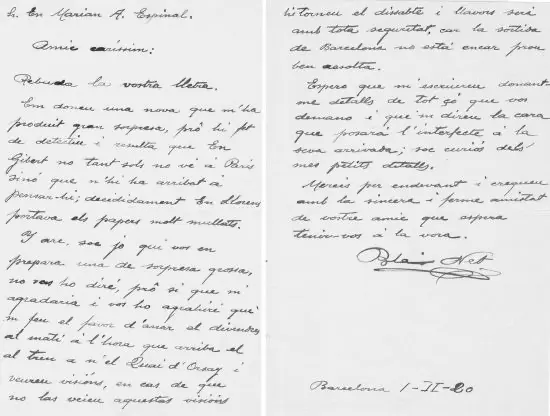 h. En Marian A. Espinal.
Amic caríssim:
Rebuda la vostra lletra.
Em doneu una nova que m'ha
produit gran sorpresa, prò hi fet
de detectiu i resulta que En
Gibert no tant sols no vè à París
sinó que n'hi ha arribat à
pensar-hi; decididament En Llorens
portava els papers molt mullats.
Y are, soc jo qui vos en
prepara una de sorpresa grossa,
no vos ho diré, prô si que m'
agradaria i vos ho agrairé què
m feu el favor d'anar el divendres
al matí à l'hora que arriba el
al tren a n'el Quai d'Orsay i
veureu visións, en cas de que
no las veieu aquestas visións
hi torneu el dissabte i llavors serà
amb tota seguritat, car la sortida
de Barcelona no està encar prou
ben resolta.
Espero que m'escriureu donant-
me detalls de tot çò que vos
demano i què m direu la cara
que posarà l'interfecte à la
seva arrivada; soc curiós dels
mes petits detalls.
Mercès per endevant i creyeu
amb la sincera i ferma amistat
de vostre amic que espera
tenir-vos à la vora.
Blai Net
Barcelona 1-II-20